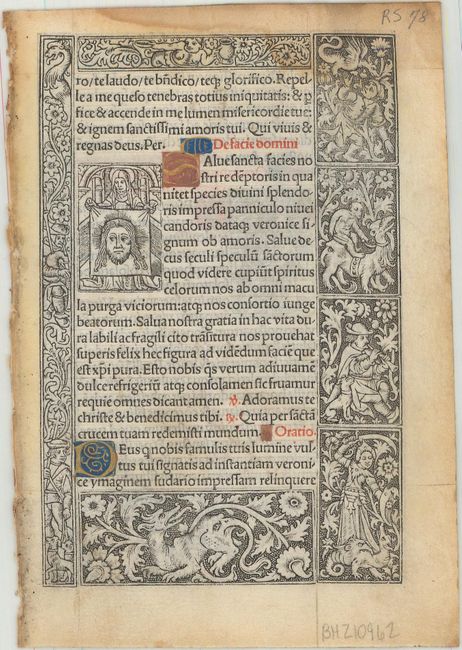 RS 78
ro/te laudo/te bñdico/teqꝫ glorifico. Repel
le a me queso tenebras totius iniquitatis: & ꝑ
fice & accende in me lumen misericordie tue:
& ignem sanctissimi amoris tui. Qui viuis &
regnas deus. Per. De facie domini
SAlue sancta facies no
stri redēptoris in qua
nitet species diuini splendo
ris impressa panniculo niuei
candoris dataqꝫ veronice si
gnum ob amoris. Salue de
cus seculi speculū sāctorum
quod videre cupiūt spiritus
celorum nos ab omni macu
la purga viciorum: atqꝫ nos consortio iunge
beatorum. Salua nostra gratia in hac vita du
ra labili ac fragili cito trāsitura nos prouehat
superis felix hec figura ad vidēdum faciē que
est xp̄i pura. Esto nobis q̄s verum adiuuamē
dulce refrigeriū atqꝫ consolamen sic fruamur
requie omnes dicant amen. ℣. Adoramus te
christe & benedicimus tibi. ℟. Quia per sāctā
crucem tuam redemisti mundum. Oratio.
DEus q nobis famulis tuis lumine vul
tus tui signatis ad instantiam veroni
ce ymaginem sudario impressam relinquere
BHZ10962